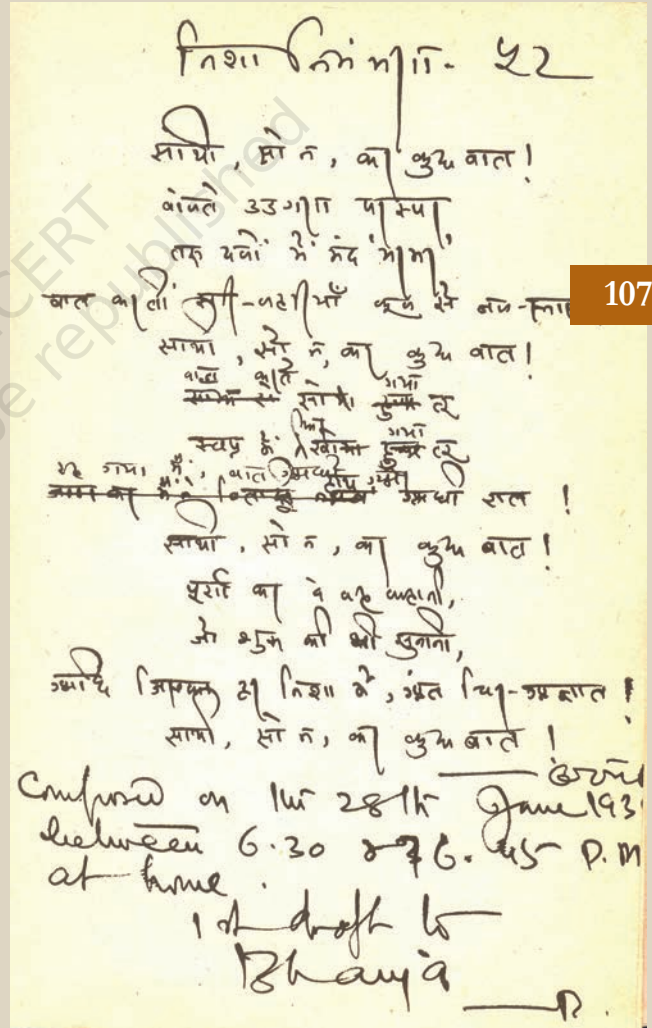 निशा निमंत्रण - ५२
साथी, सो न, कर कुछ बात!
बोलते उडुगण परस्पर,
तरु दलों में मंद मरमर,
बात करतीं सरि-लहरियाँ कूल से जल-स्ना
साथी, सो न, कर कुछ बात!
बात करते
सो गया तू
स्वप्न में फिर खो गया तू
रह गया मैं, और आधी बात, आधी रात!
साथी, सो न, कर कुछ बात!
पूर्ण कर दे वह कहानी,
जो शुरू की थी सुनानी,
आदि जिसका हर निशा में, अंत चिर-अज्ञात!
साथी, सो न, कर कुछ बात!
Composed on the 28th June 193
between 6.30 & 6.45 P.M
at home.
1st draft to
Bhanja
107
NCERT
be republished